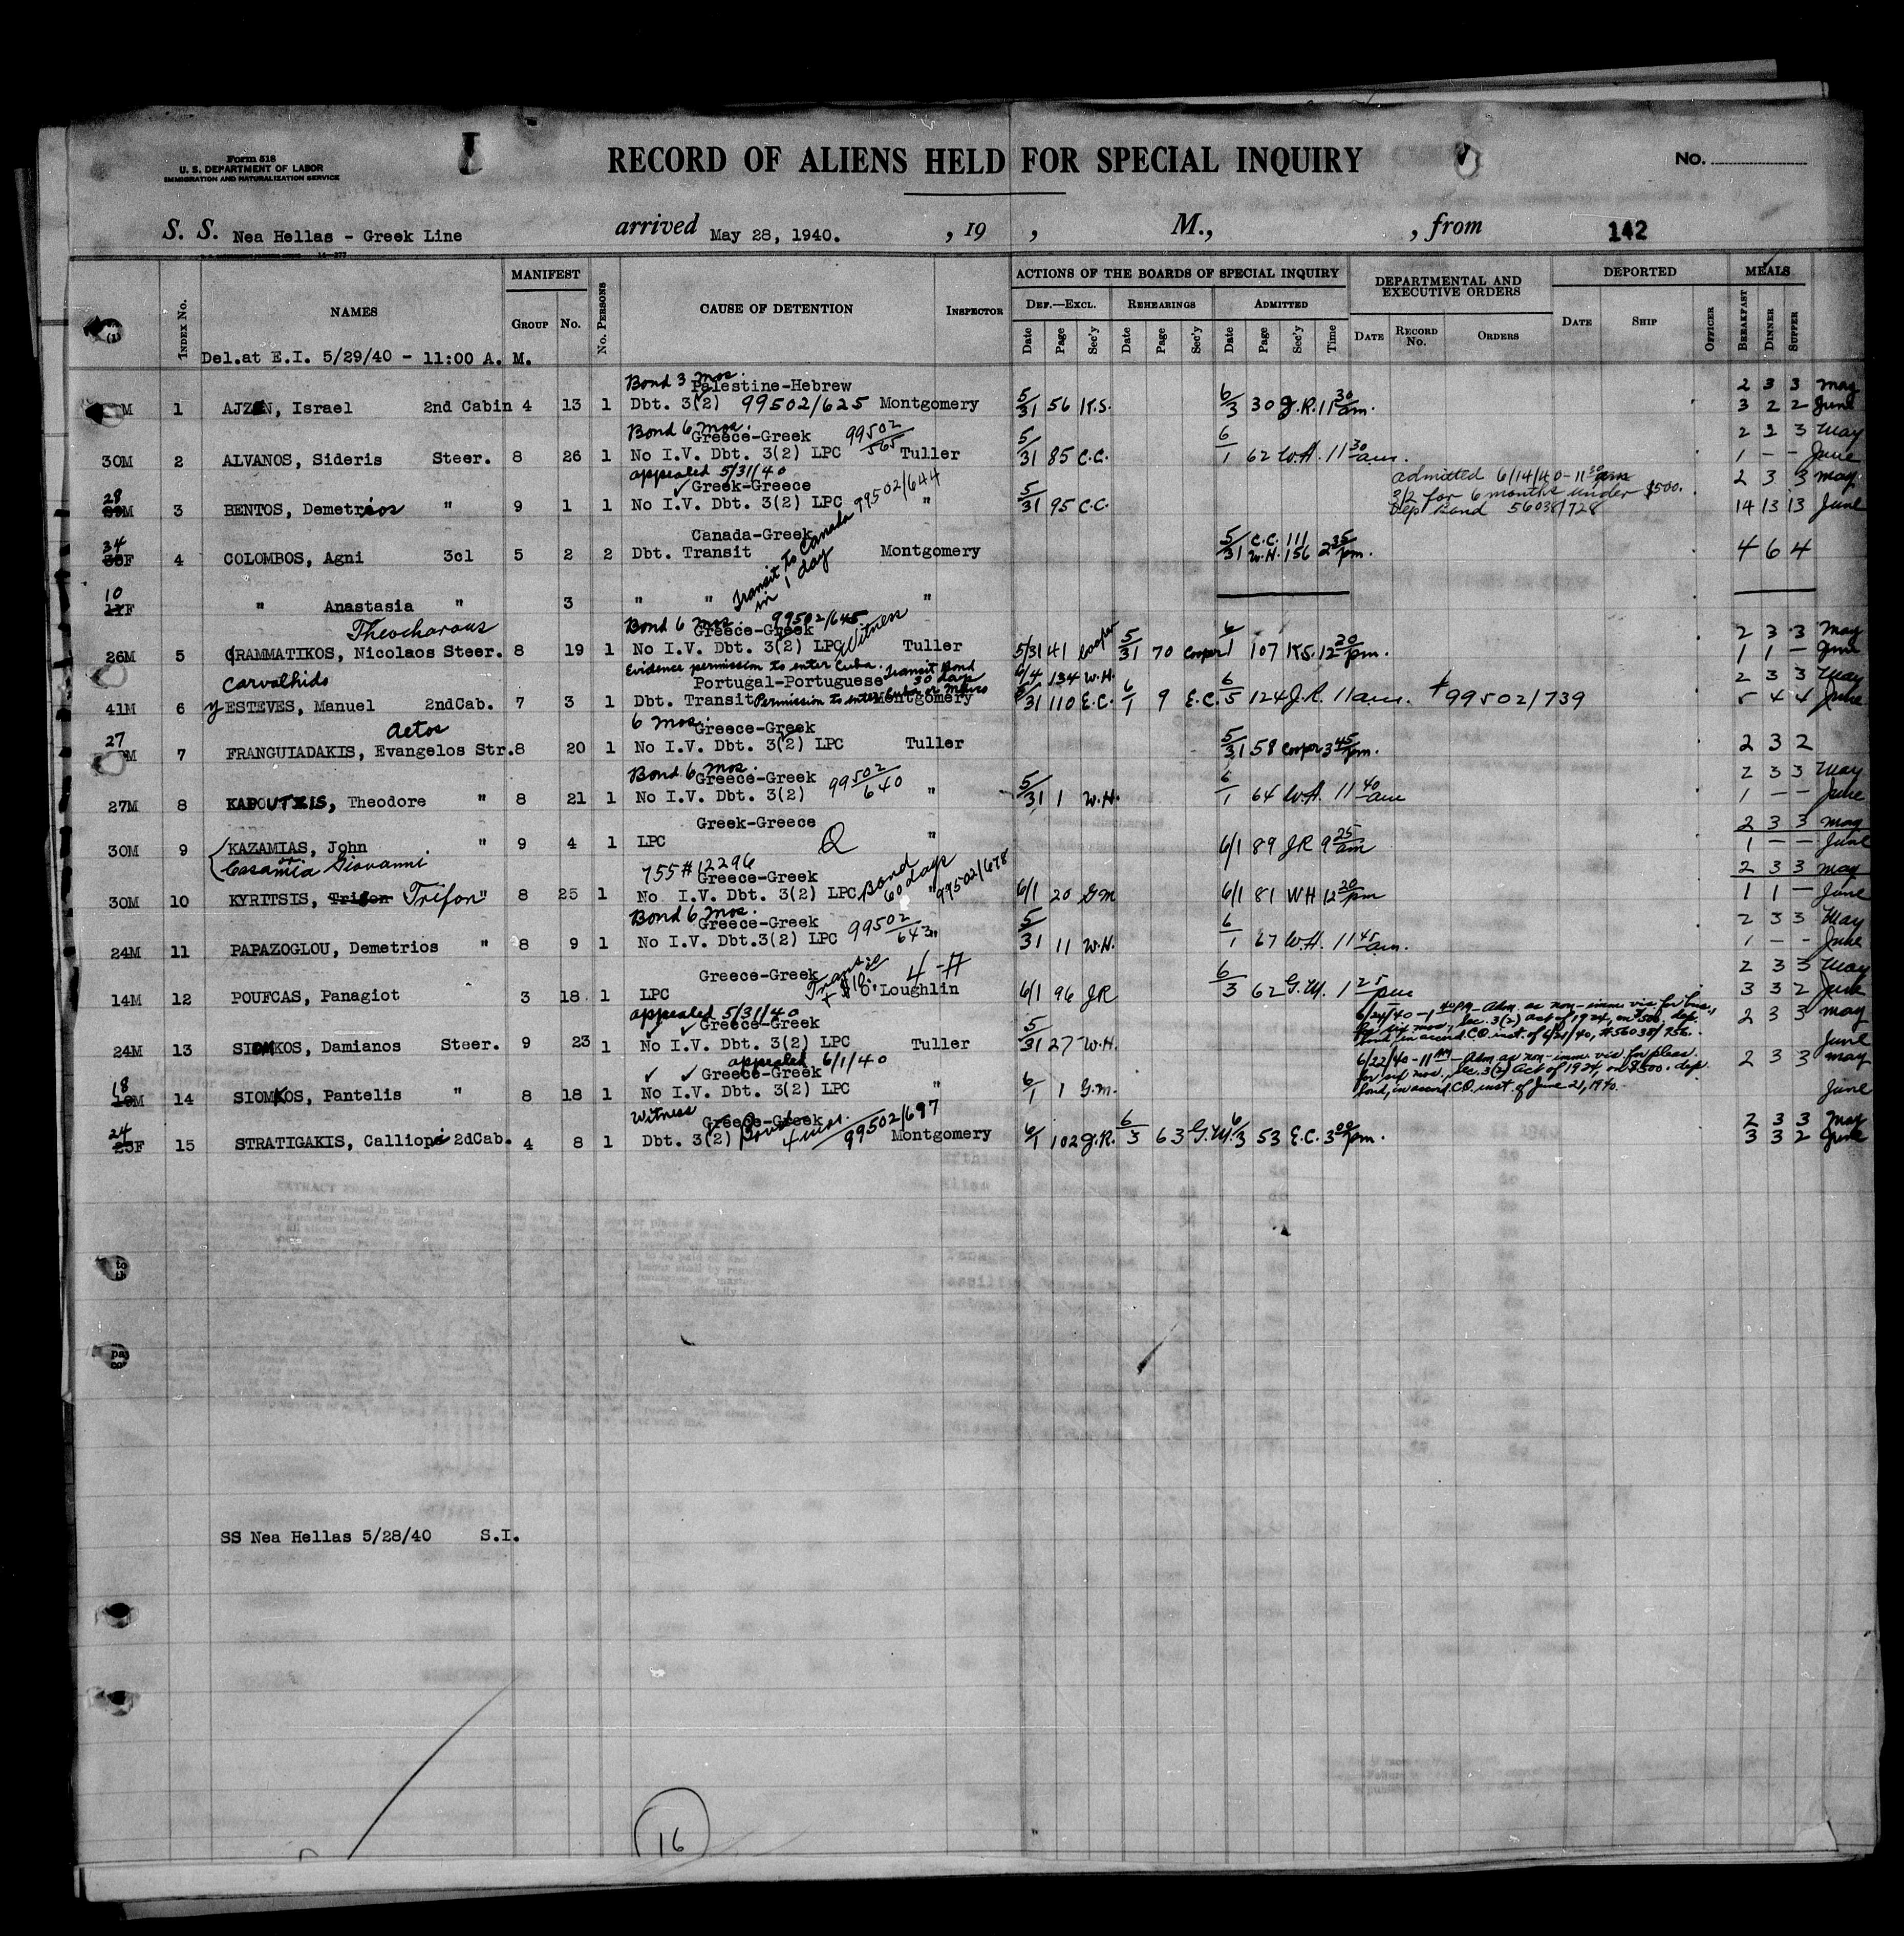 Form 518
U. S. DEPARTMENT OF LABOR
IMMIGRATION AND NATURALIZATION SERVICE
RECORD OF ALIENS HELD FOR SPECIAL INQUIRY
No.
S. S. Nea Hellas - Greek Line arrived May 28, 1940. , 19 , M., , from 142
INDEX No. NAMES MANIFEST GROUP No. No. PERSONS CAUSE OF DETENTION INSPECTOR
ACTIONS OF THE BOARDS OF SPECIAL INQUIRY
DEF.—EXCL. Date Page Sec'y REHEARINGS Date Page Sec'y ADMITTED Date Page Sec'y Time
DEPARTMENTAL AND EXECUTIVE ORDERS DATE RECORD No. ORDERS
DEPORTED DATE SHIP OFFICER
MEALS BREAKFAST DINNER SUPPER
Del.at E.I. 5/29/40 - 11:00 A. M.
Bond 3 mos.
Palestine-Hebrew 2 3 3 May
M 1 AJZEN, Israel 2nd Cabin 4 13 1 Dbt. 3(2) 99502/625 Montgomery 5/31 56 K.S. 6/3 30 J.R. 11 30 am. 3 2 2 June
Bond 6 mos.
Greece-Greek 99502/565 2 2 3 May
30M 2 ALVANOS, Sideris Steer. 8 26 1 No I.V. Dbt. 3(2) LPC Tuller 5/31 85 C.C. 6/1 62 W.H. 11 30 am. 1 - - June
appealed 5/31/40
Greek-Greece 99502/644 admitted 6/14/40 - 11 30 am 2 3 3 May
28
29M 3 BENTOS, Demetrios " 9 1 1 No I.V. Dbt. 3(2) LPC " 5/31 95 C.C. 3/2 for 6 months under $500. 14 13 13 June
Dep Bond 56038/728
Canada-Greek
34
35F 4 COLOMBOS, Agni 3cl 5 2 2 Dbt. Transit Montgomery 5/31 C.C. 111 W.H. 156 2 35 pm. 4 6 4
Transit to Canada in 1 day
10
11F " Anastasia " 3 " " "
Theocharous
Bond 6 mos. 99502/645
Greece-Greek Witness 2 3 3 May
26M 5 GRAMMATIKOS, Nicolaos Steer. 8 19 1 No I.V. Dbt. 3(2) LPC Tuller 5/31 41 Cooper 5/31 70 Cooper 6/1 107 K.S. 12 20 pm. 1 1 - June
Evidence permission to enter Cuba. Transit Bond 30 days
Carvalhido
Portugal-Portuguese 6/4 134 W.H. 2 3 3 May
41M 6 y ESTEVES, Manuel 2ndCab. 7 3 1 Dbt. Transit Permission to enter Cuba or Montgomery 5/31 110 E.C. 6/1 9 E.C. 6/5 124 J.R. 11 am. #99502/739 5 4 4 June
Aetos
6 mos.
Greece-Greek
27
M 7 FRANGUIADAKIS, Evangelos Str. 8 20 1 No I.V. Dbt. 3(2) LPC Tuller 5/31 58 Cooper 3 45 pm. 2 3 2
Bond 6 mos.
Greece-Greek 99502/640 2 3 3 May
27M 8 KAPOUTZIS, Theodore " 8 21 1 No I.V. Dbt. 3(2) " 5/31 1 W.H. 6/1 64 W.H. 11 40 am 1 - - June
Greek-Greece 2 3 3 May
30M 9 KAZAMIAS, John " 9 4 1 LPC " 6/1 89 JR 9 25 am 1 - - June
or
Casamia Giovanni
755#12296
Greece-Greek Bond 60 days 99502/678 2 3 3 May
30M 10 KYRITSIS, Trifon Trifon " 8 25 1 No I.V. Dbt. 3(2) LPC " 6/1 20 GM 6/1 81 WH 12 20 pm 1 1 - June
Bond 6 mos.
Greece-Greek 99502/643 2 3 3 May
24M 11 PAPAZOGLOU, Demetrios " 8 9 1 No I.V. Dbt.3(2) LPC " 5/31 11 W.H. 6/1 67 W.H. 11 45 am. 1 - - June
Greece-Greek 4-A 2 3 3 May
14M 12 POUFCAS, Panagiot 3 18 1 LPC O'Loughlin 6/1 96 JR 6/3 62 G.M. 1 25 pm 3 3 2 June
appealed 5/31/40
Greece-Greek 2 3 3 May
24M 13 SIOMKOS, Damianos Steer. 9 23 1 No I.V. Dbt. 3(2) LPC Tuller 5/31 27 W.H. June
6/24/40 - 1 40 PM - Adm. as non-imm. vis. for bus.,
for six mos., Sec. 3(2) act of 1924, on $500. dep.
bond, in accord. C.O. inst. of 6/21/40, #56038/756.
appealed 6/1/40
Greece-Greek 2 3 3 May
18
19M 14 SIOMKOS, Pantelis " 8 18 1 No I.V. Dbt. 3(2) LPC " 6/1 1 G.M. June
6/22/40 - 11 AM - Adm as non-imm. vis. for pleas.
for six mos., Sec. 3(2) Act of 1924, on $500. dep.
bond, in accord. C.O. inst. of June 21, 1940.
Witness
Greece-Greek 2 3 3 May
24
25F 15 STRATIGAKIS, Calliopi 2dCab. 4 8 1 Dbt. 3(2) Bond 4 mos. 99502/697 Montgomery 6/1 102 J.R. 6/3 63 G.M. 6/3 53 E.C. 3 00 pm. 3 3 2 June
SS Nea Hellas 5/28/40 S.I.
16